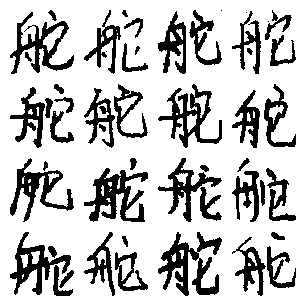 舵舵舵舵
舵舵舵舵
舵舵舵舵
舵舵舵舵